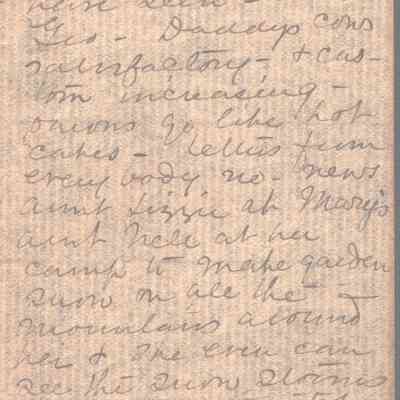 have seen -
Geo - Daddys cows
satisfactory - & cus-
tom increasing -
onions go like hot
cakes - letters from
every body, no - news
aunt Lizzie at Mary's
aunt Nell at her
camp to make garden
snow on all the
mountains around
her & she even can
see the snow storms